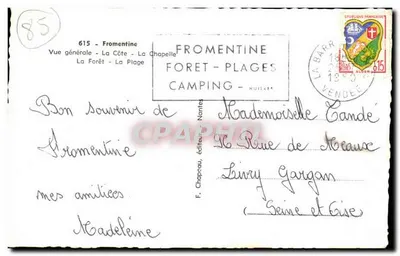 85
615 - Fromentine
Vue générale - La Côte - La Chapelle
La Forêt - La Plage
FROMENTINE
FORET - PLAGES
CAMPING -
LA BARR
VENDEE
REPUBLIQUE FRANÇAISE
0,15
Bon souvenir de
Fromentine
mes amitiées
Madeleine
F. Chapeau, éditeur - Nantes
CPARCHE
Mademoiselle Tandé
Rue de Meaux
Livry Gargan
Seine et Oise